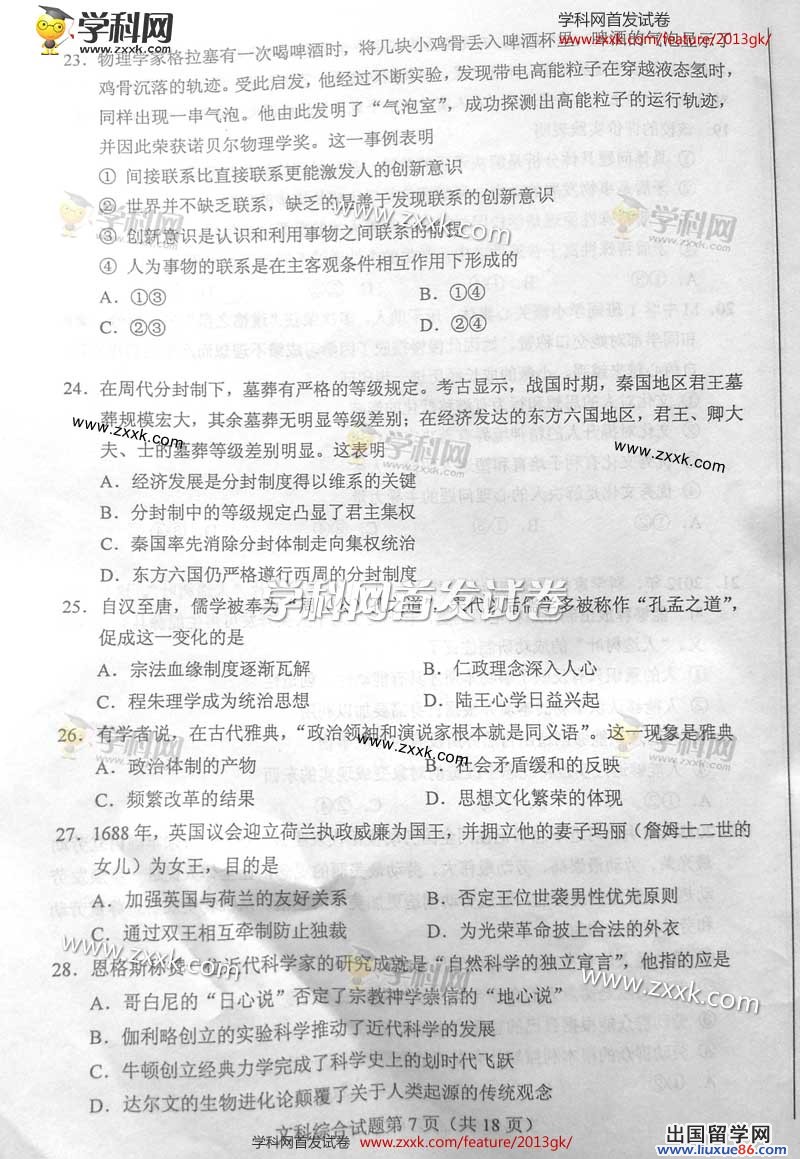 学科网首发试卷
www.zxxk.com/feature/2013gk/
学科网
www.zxxk.com
23．物理学家格拉塞有一次喝啤酒时，将几块小鸡骨丢入啤酒杯里，啤酒的气泡显示了
鸡骨沉落的轨迹。受此启发，他经过不断实验，发现带电高能粒子在穿越液态氢时，
同样出现一串气泡。他由此发明了“气泡室”，成功探测出高能粒子的运行轨迹，
并因此荣获诺贝尔物理学奖。这一事例表明
① 间接联系比直接联系更能激发人的创新意识
② 世界并不缺乏联系，缺乏的是善于发现联系的创新意识
③ 创新意识是认识和利用事物之间联系的前提
④ 人为事物的联系是在主客观条件相互作用下形成的
A．①③ B．①④
C．②③ D．②④
24．在周代分封制下，墓葬有严格的等级规定。考古显示，战国时期，秦国地区君王墓
葬规模宏大，其余墓葬无明显等级差别；在经济发达的东方六国地区，君王、卿大
夫、士的墓葬等级差别明显。这表明
A．经济发展是分封制度得以维系的关键
B．分封制中的等级规定凸显了君主集权
C．秦国率先消除分封体制走向集权统治
D．东方六国仍严格遵行西周的分封制度
学科网首发试卷
25．自汉至唐，儒学被奉为“周 之道”， 多被称作“孔孟之道”，
促成这一变化的是
A．宗法血缘制度逐渐瓦解 B．仁政理念深入人心
C．程朱理学成为统治思想 D．陆王心学日益兴起
26．有学者说，在古代雅典，“政治领袖和演说家根本就是同义语”。这一现象是雅典
A．政治体制的产物 B．社会矛盾缓和的反映
C．频繁改革的结果 D．思想文化繁荣的体现
27．1688 年，英国议会迎立荷兰执政威廉为国王，并拥立他的妻子玛丽（詹姆士二世的
女儿）为女王，目的是
A．加强英国与荷兰的友好关系 B．否定王位世袭男性优先原则
C．通过双王相互牵制防止独裁 D．为光荣革命披上合法的外衣
28．恩格斯称 近代科学家的研究成就是“自然科学的独立宣言”，他指的应是
A．哥白尼的“日心说”否定了宗教神学崇信的“地心说”
B．伽利略创立的实验科学推动了近代科学的发展
C．牛顿创立经典力学完成了科学史上的划时代飞跃
D．达尔文的生物进化论颠覆了关于人类起源的传统观念
文科综合试题第 7 页（共 18 页）
学科网首发试卷
www.zxxk.com/feature/2013gk/
出国留学网
www.liuxue86.com